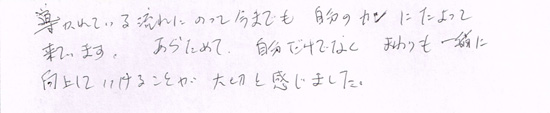 導かれている流れにのって今までも 自分のカンにたよって
来ています。 あらためて、自分だけでなく まわりも一緒に
向上していけることが 大切と感じました。